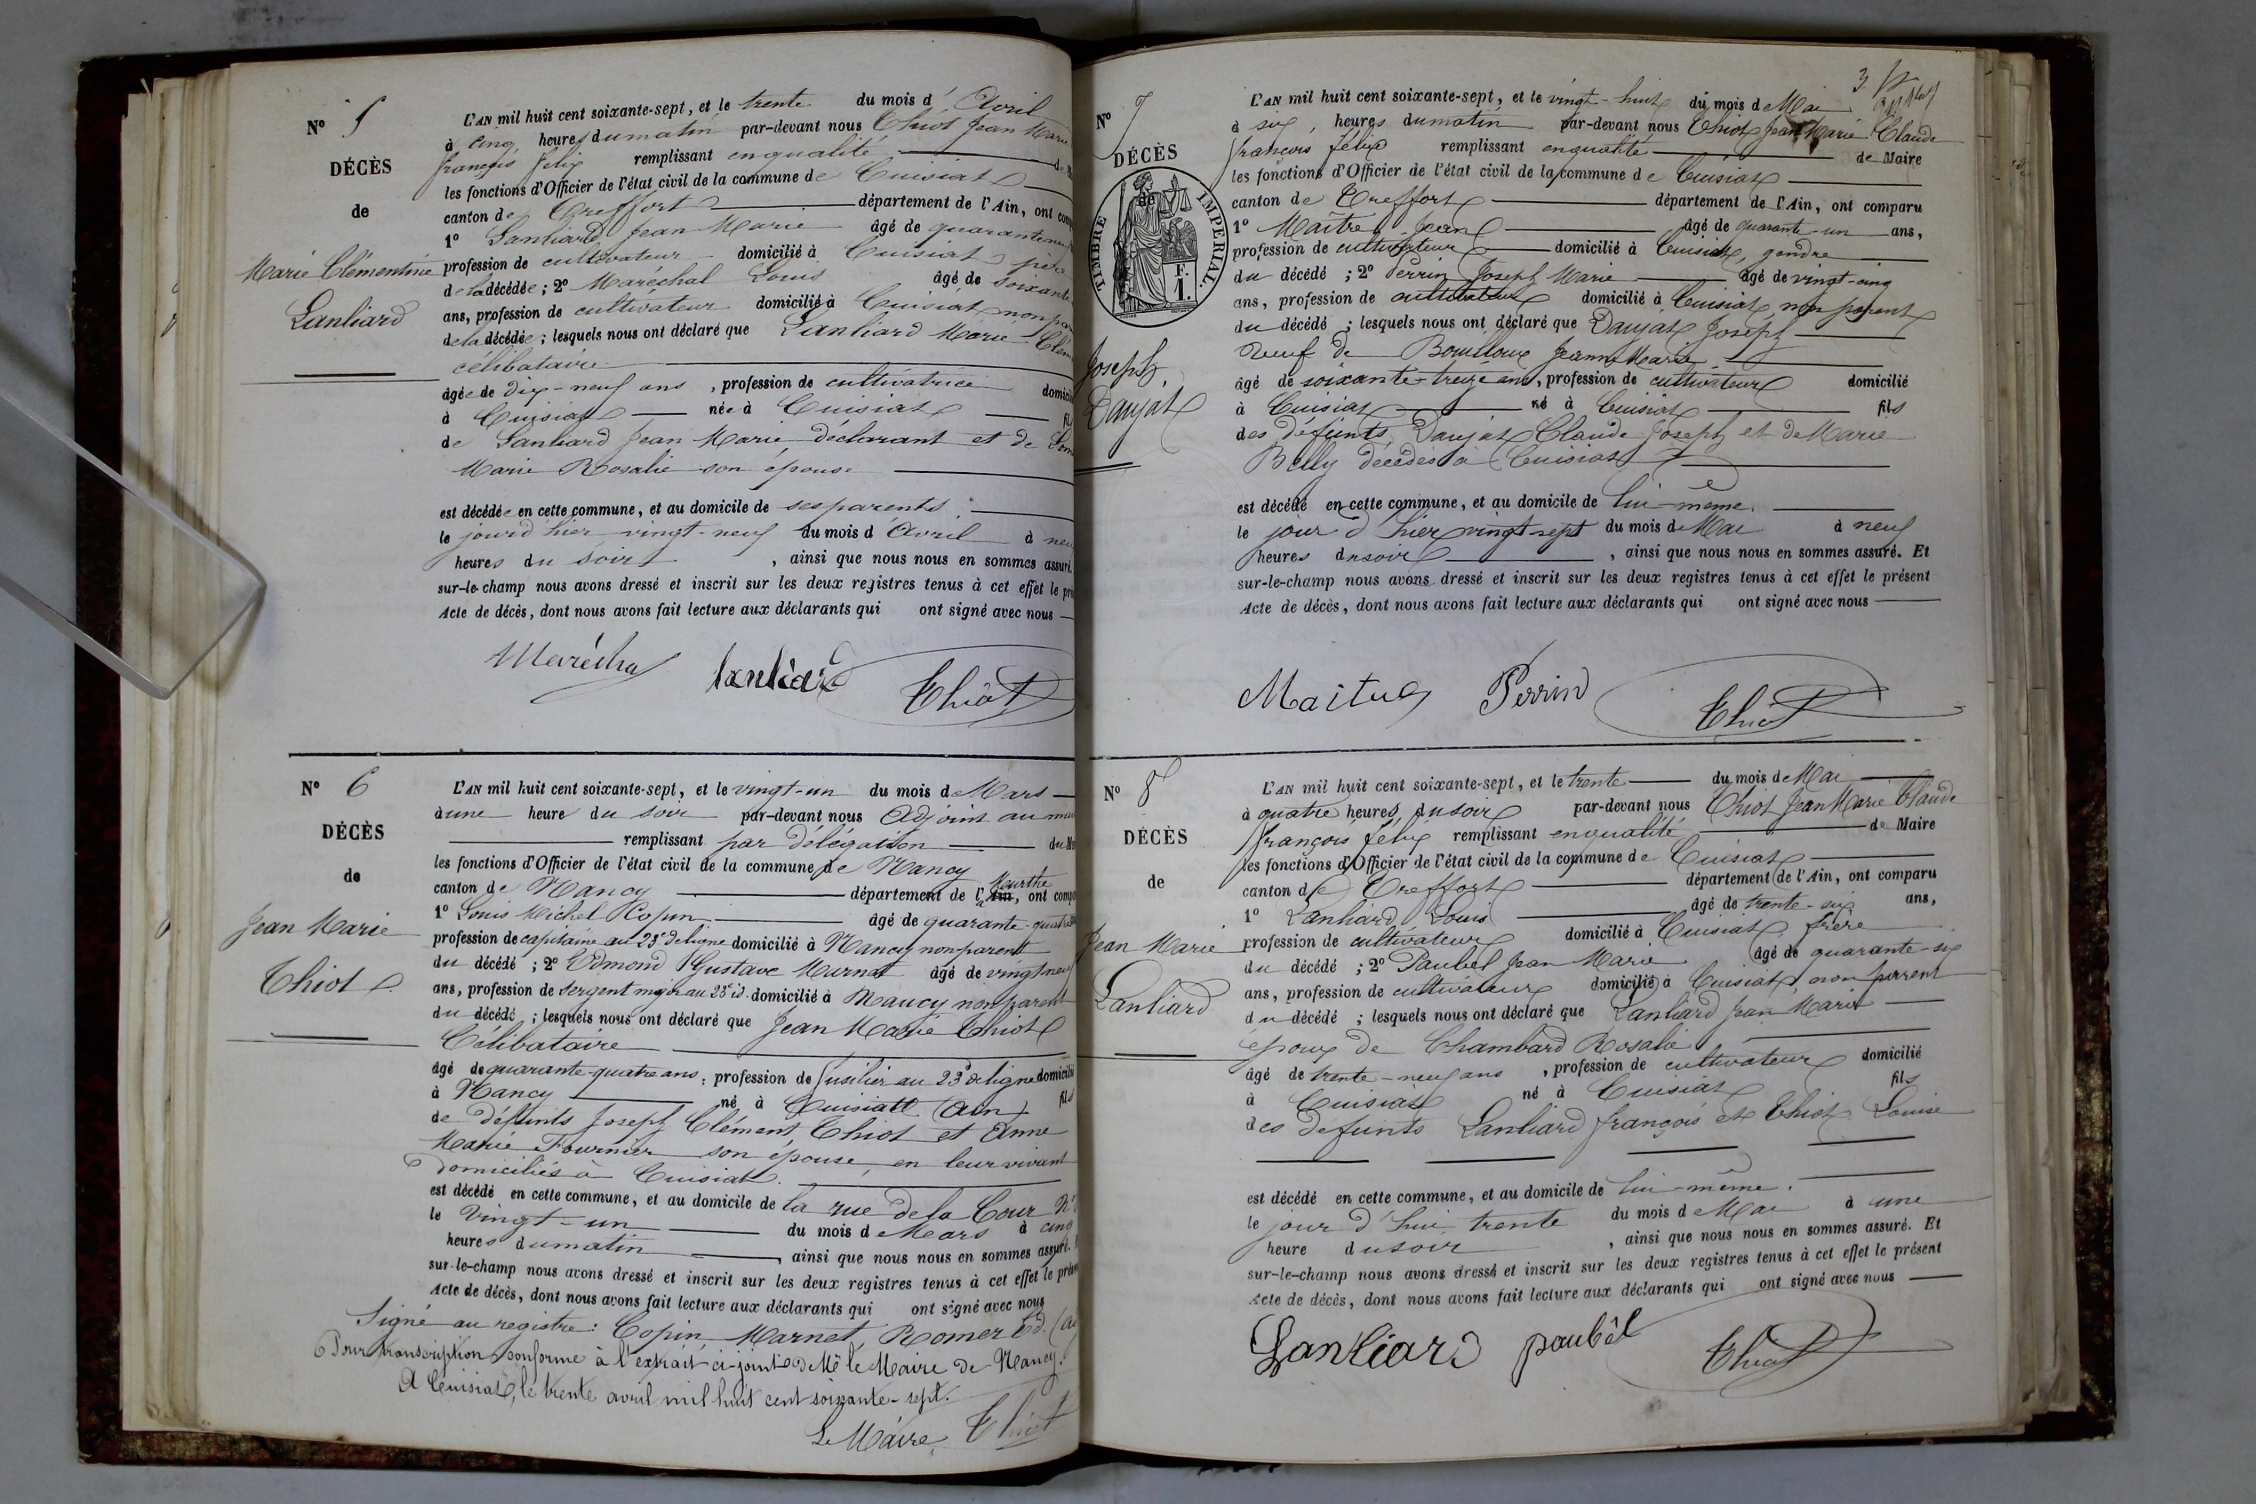 N° 5
DÉCÈS
de
Marie Clémentine
Lanliard
L'AN mil huit cent soixante-sept, et le trente du mois d'Avril
à cinq heures du matin par-devant nous Thiot Jean Marie
françois félix remplissant en qualité de
les fonctions d'Officier de l'état civil de la commune de Cuisiat
canton de Treffort département de l'Ain, ont
1° Lanliard Jean Marie âgé de
profession de cultivateur domicilié à Cuisiat père
de la décédée ; 2° Maréchal Louis âgé de soixante
ans, profession de cultivateur domicilié à Cuisiat non
de la décédée ; lesquels nous ont déclaré que Lanliard Marie
célibataire
âgée de dix-neuf ans, profession de cultivatrice
à Cuisiat née à Cuisiat
de Lanliard Jean Marie, déclarant et de
Marie Rosalie son épouse
est décédée en cette commune, et au domicile de ses parents.
le jour d'hier vingt-neuf du mois d'Avril à
heures du soir, ainsi que nous nous en sommes assuré.
sur-le-champ nous avons dressé et inscrit sur les deux registres tenus à cet effet le
Acte de décès, dont nous avons fait lecture aux déclarants qui ont signé avec nous
Maréchal Lanliard Thiot
N° 6
DÉCÈS
de
Jean Marie
Thiot
L'AN mil huit cent soixante-sept, et le vingt-un du mois de Mars
à une heure du soir par-devant nous Adjoint au
remplissant par délégation du
les fonctions d'Officier de l'état civil de la commune de Nancy
canton de Nancy département de l'Ain Meurthe, ont
1° Louis Michel Copin âgé de
profession de capitaine au 23e de ligne domicilié à Nancy non parent
du décédé ; 2° Edmond Gustave Marnet âgé de vingt neuf
ans, profession de sergent major au 23e id. domicilié à Nancy non parent
du décédé ; lesquels nous ont déclaré que Jean Marie Thiot
Célibataire
âgé de quarante-quatre ans, profession de fusilier au 23e de ligne domicilié
à Nancy né à Cuisiatt (Ain) fils
de défunts Joseph Clément Thiot et Anne
Marie Fournier son épouse, en leur vivant
domiciliés à Cuisiat.
est décédé en cette commune, et au domicile de la rue de la Cour
le vingt-un du mois de Mars à cinq
heures du matin, ainsi que nous nous en sommes assuré.
sur-le-champ nous avons dressé et inscrit sur les deux registres tenus à cet effet le
Acte de décès, dont nous avons fait lecture aux déclarants qui ont signé avec nous
Signé au registre : Copin, Marnet, Romer Ed.
Pour transcription conforme à l'extrait ci-joint de Mr le Maire de Nancy.
A Cuisiat, le trente avril mil huit cent soixante-sept.
Le Maire, Thiot
3
N° 7
DÉCÈS
de
TIMBRE IMPERIAL.
F. 1.
Joseph
Daujat
L'AN mil huit cent soixante-sept, et le vingt-huit du mois de Mai
à six, heures du matin par-devant nous Thiot Jean Marie Claude
françois félix remplissant en qualité de Maire
les fonctions d'Officier de l'état civil de la commune de Cuisiat
canton de Treffort département de l'Ain, ont comparu
1° Maître Jean âgé de quarante-un ans,
profession de cultivateur domicilié à Cuisiat, gendre
du décédé ; 2° Perrin Joseph Marie âgé de vingt-cinq
ans, profession de cultivateur domicilié à Cuisiat, non parent
du décédé ; lesquels nous ont déclaré que Daujat Joseph
veuf de Bouilloux Jeanne Marie
âgé de soixante-treize ans, profession de cultivateur domicilié
à Cuisiat né à Cuisiat fils
des défunts Daujat Claude Joseph et de Marie
Belly décédés à Cuisiat
est décédé en cette commune, et au domicile de lui-même.
le jour d'hier vingt-sept du mois de Mai à neuf
heures du soir, ainsi que nous nous en sommes assuré. Et
sur-le-champ nous avons dressé et inscrit sur les deux registres tenus à cet effet le présent
Acte de décès, dont nous avons fait lecture aux déclarants qui ont signé avec nous
Maitre Perrin Thiot
N° 8
DÉCÈS
de
Jean Marie
Lanliard
L'AN mil huit cent soixante-sept, et le trente du mois de Mai
à quatre heures du soir par-devant nous Thiot Jean Marie Claude
françois félix remplissant en qualité de Maire
les fonctions d'Officier de l'état civil de la commune de Cuisiat
canton de Treffort département de l'Ain, ont comparu
1° Lanliard Louis âgé de trente-six ans,
profession de cultivateur domicilié à Cuisiat, frère
du décédé ; 2° Paubel Jean Marie âgé de quarante-six
ans, profession de cultivateur domicilié à Cuisiat, non parent
du décédé ; lesquels nous ont déclaré que Lanliard Jean Marie
époux de Chambard Rosalie
âgé de trente-neuf ans, profession de cultivateur domicilié
à Cuisiat né à Cuisiat fils
des défunts Lanliard françois et Thiot Louise
est décédé en cette commune, et au domicile de lui-même.
le jour d'hui trente du mois de Mai à une
heure du soir, ainsi que nous nous en sommes assuré. Et
sur-le-champ nous avons dressé et inscrit sur les deux registres tenus à cet effet le présent
Acte de décès, dont nous avons fait lecture aux déclarants qui ont signé avec nous
Lanliard paubel Thiot